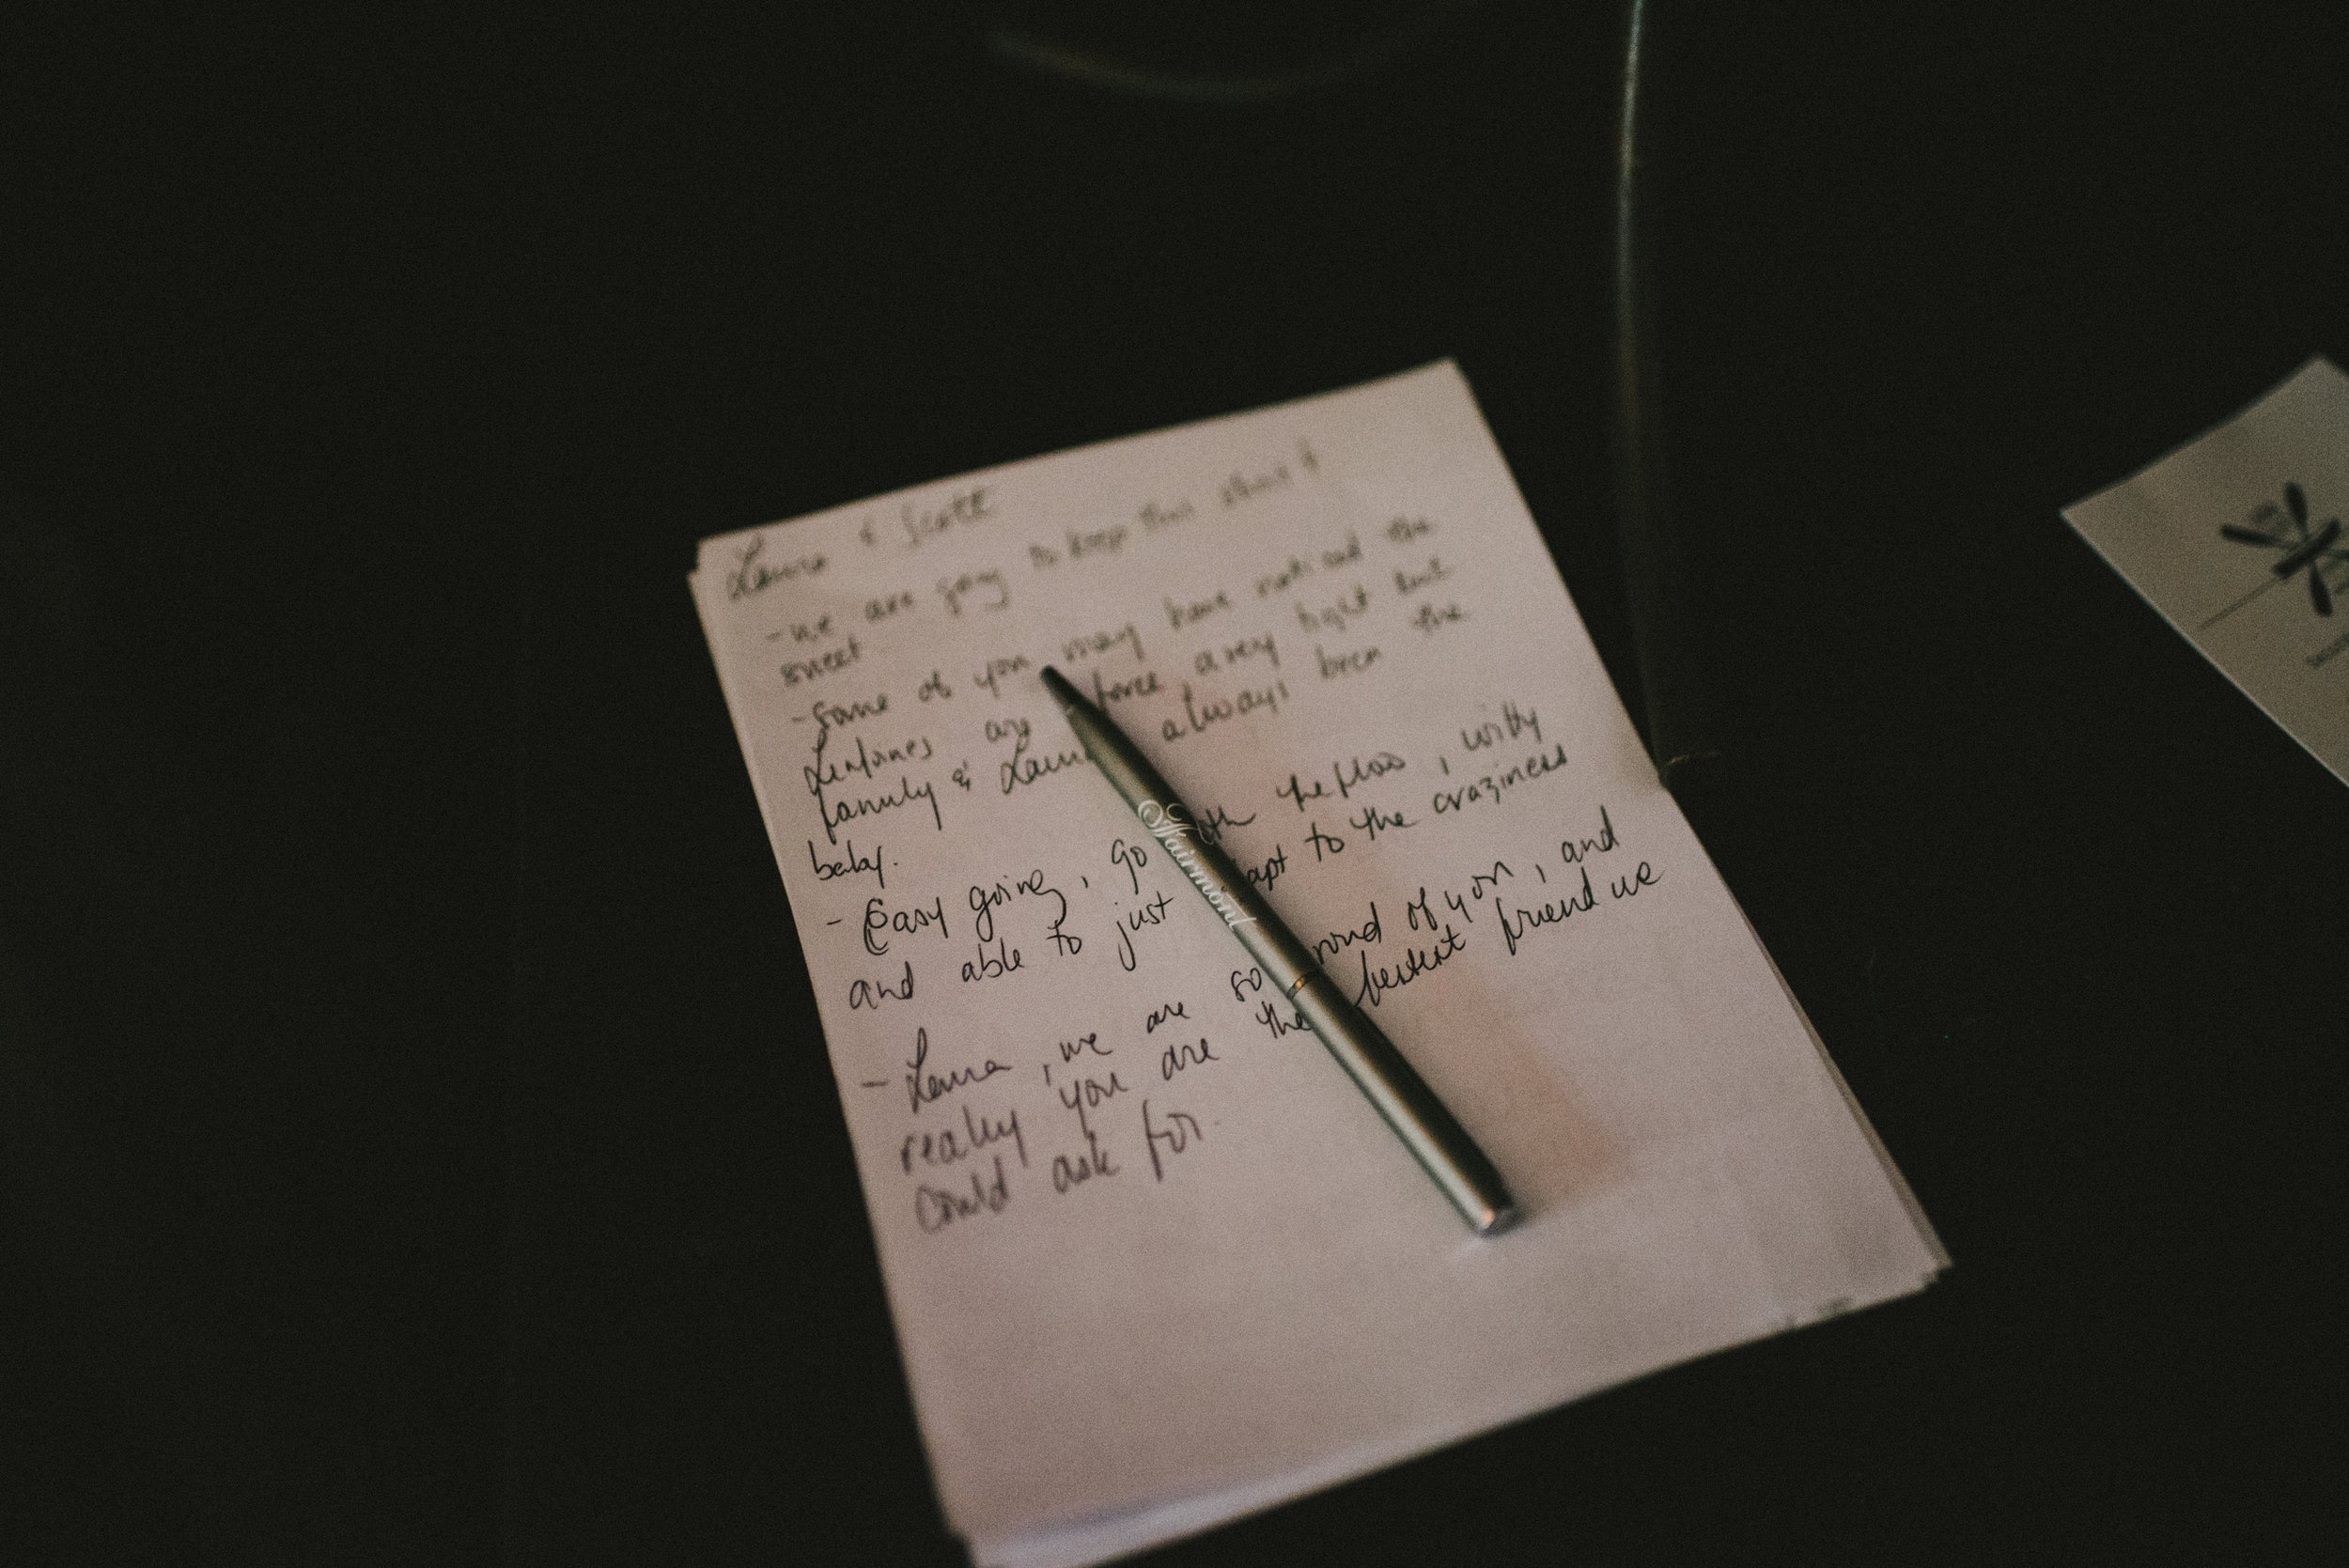 Laura & Scott
- we are going to keep this short &
sweet
- Some of you may have noticed the
are force, a very tight knit
family & Laura always been the
baby.
- Easy going, go with the flow, witty
and able to just adapt to the craziness
- Laura, we are so proud of you, and
really you are the bestest friend we
could ask for.
Fairmont